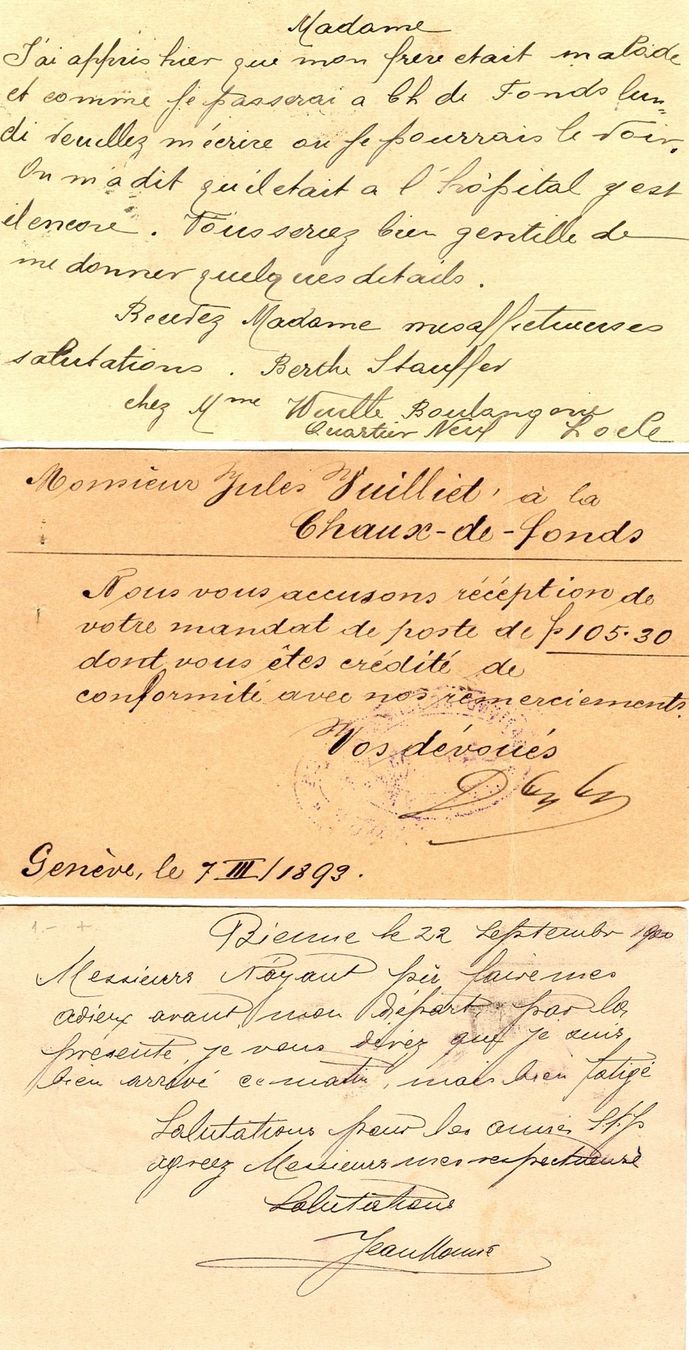 Madame
J'ai appris hier que mon frère etait malade
et comme je passerai a Ch de Fonds lun-
di veuillez m'écrire ou je pourrais le voir.
On m'a dit qu'il etait a l'hôpital y est
il encore. Vous seriez bien gentille de
me donner quelques details.
Recevez Madame mes affectueuses
salutations. Berthe Stauffer
chez Mme Vuille Boulangerie
Quartier Neuf Locle
Monsieur Jules Vuilliet, à la
Chaux-de-fonds
Nous vous accusons réception de
votre mandat de poste de f 105.30
dont vous êtes crédité de
conformité avec nos remerciements.
Vos dévoués
Genève, le 7 III/1893.
1.- +
Bienne le 22 Septembr 1900
Messieurs N'ayant pû faire mes
adieux avant mon départ, par la
présente, je vous direz que je suis
bien arrivé ce matin, mais bien fatigé
Salutations pour les amies
agreez Messieurs mes respectueuse
Salutations